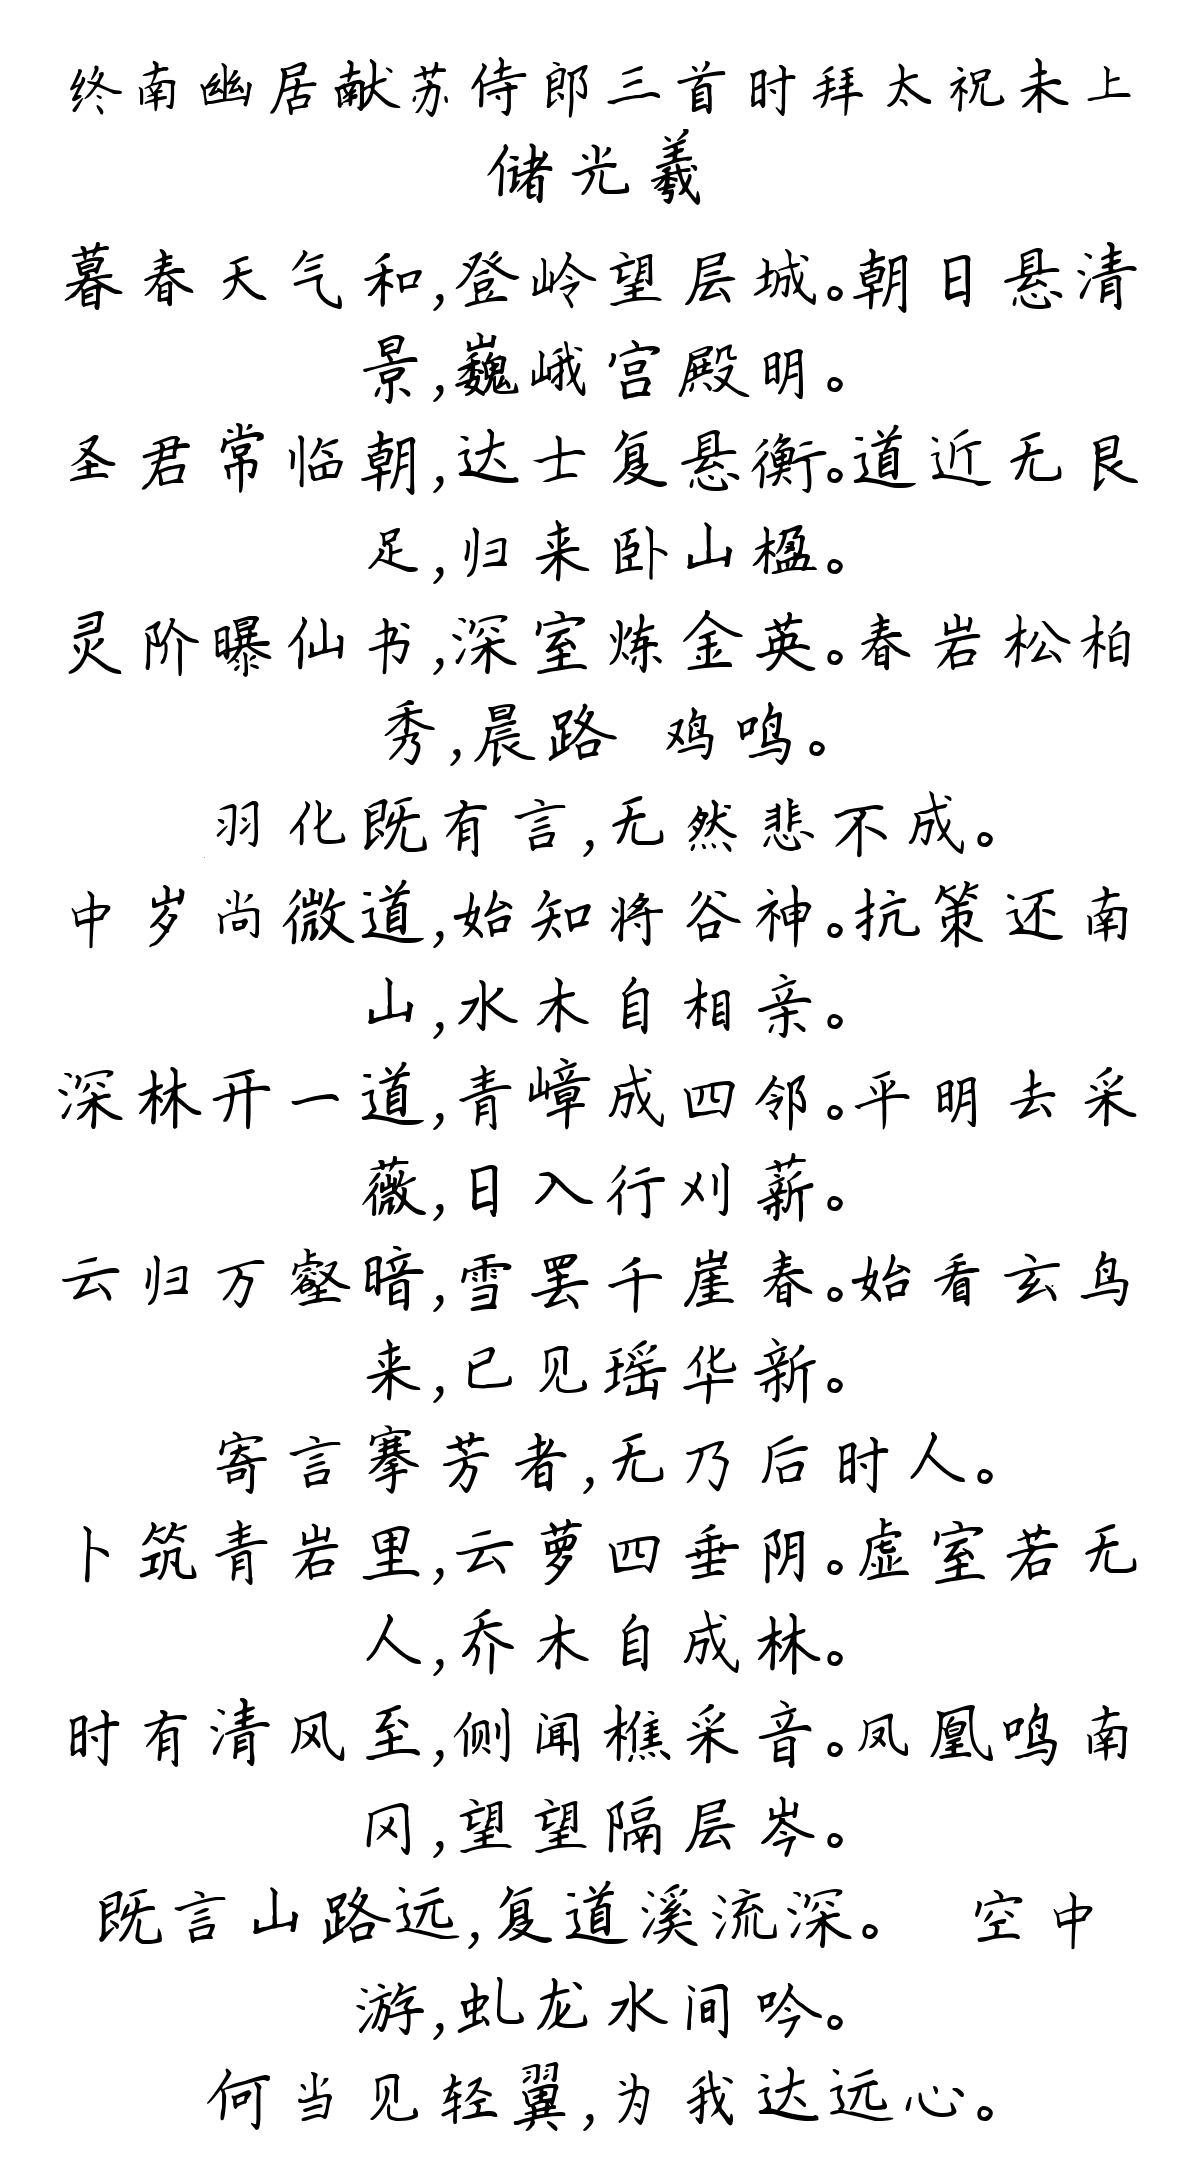 终南幽居献苏侍郎三首时拜太祝未上
储光羲
暮春天气和,登岭望层城。朝日悬清
景,巍峨宫殿明。
圣君常临朝,达士复悬衡。道近无艮
足,归来卧山楹。
灵阶曝仙书,深室炼金英。春岩松柏
秀,晨路 鸡鸣。
羽化既有言,无然悲不成。
中岁尚微道,始知将谷神。抗策还南
山,水木自相亲。
深林开一道,青嶂成四邻。平明去采
薇,日入行刈薪。
云归万壑暗,雪罢千崖春。始看玄鸟
来,已见瑶华新。
寄言搴芳者,无乃后时人。
卜筑青岩里,云萝四垂阴。虚室若无
人,乔木自成林。
时有清风至,侧闻樵采音。凤凰鸣南
冈,望望隔层岑。
既言山路远,复道溪流深。 空中
游,虬龙水间吟。
何当见轻翼,为我达远心。